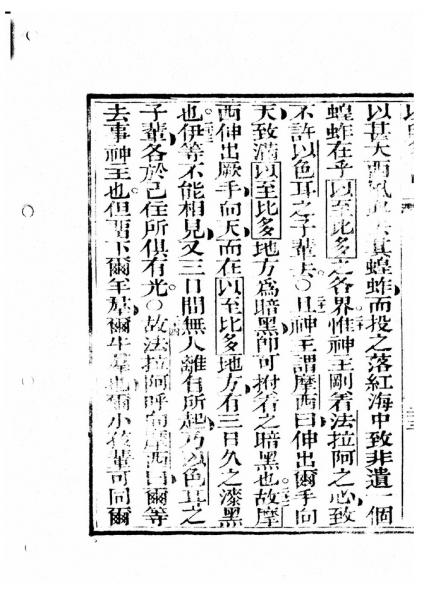 以甚大西風去其蝗蚱而投之落紅海中致非遺一個
蝗蚱在乎以至比多之各界惟神王剛着法拉阿之心致
不許以色耳之子輩去○且神王謂摩西曰伸出爾手向
天致滿以至比多地方爲暗黑卽可拊着之暗黑也故摩
西伸出厥手向天而在以至比多地方有三日久之漆黑
也伊等不能相見又三日間無人離自所起乃以色耳之
子輩各於己住所俱有光○故法拉阿呼向摩西曰爾等
去事神王也但留下爾羊羣爾牛羣也爾小孩輩可同爾